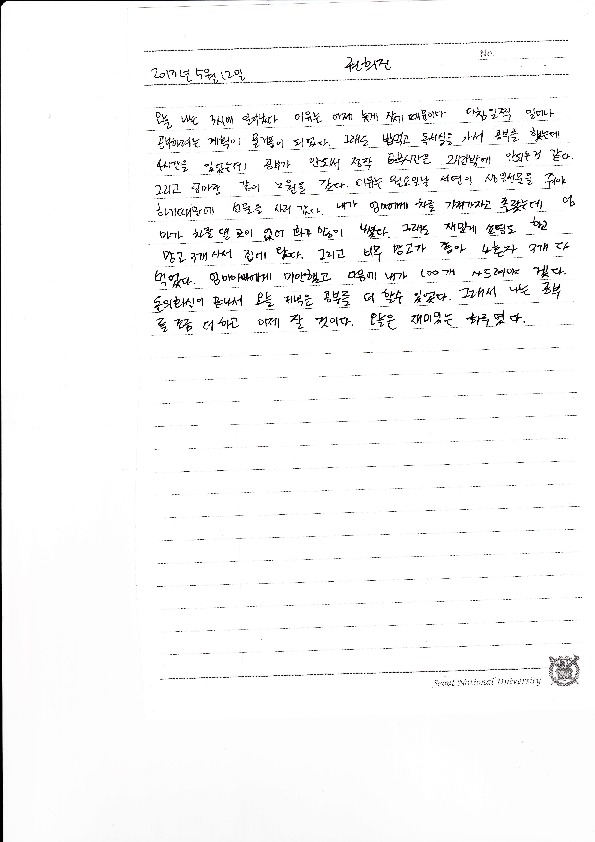 No.
2017년 5월 12일
오늘 나는 3시에 일어났다 이유는 어제 늦게 잤기 때문이다 아침일찍 일어나
공부하려는 계획이 물거품이 되었다. 그래도 밥먹고 독서실을 가서 공부를 했는데
4시간을 있었는데 공부가 안되서 실제 공부시간은 2시간밖에 안되는것 같다.
그리고 엄마랑 같이 을 갔다. 이유는 월요일날 이 선물을 줘야
하기때문에 선물을 사러 갔다. 내가 엄마에게 차를 가져가자고 했는데 엄
마가 차를 댈 곳이 없어 이 했다. 그래도 재밌게 쇼핑도 하고
망고 3개 사서 집에 왔다. 그리고 너무 망고가 좋아 혼자 3개 다
먹었다. 엄마아빠에게 미안했고 다음에 내가 100개 사드려야 겠다.
끝나서 오늘 저녁은 공부를 더 할수 있었다. 그래서 나는 공부
를 조금 더 하고 이제 잘 것이다. 오늘은 재미있는 하루였다.
Seoul National University